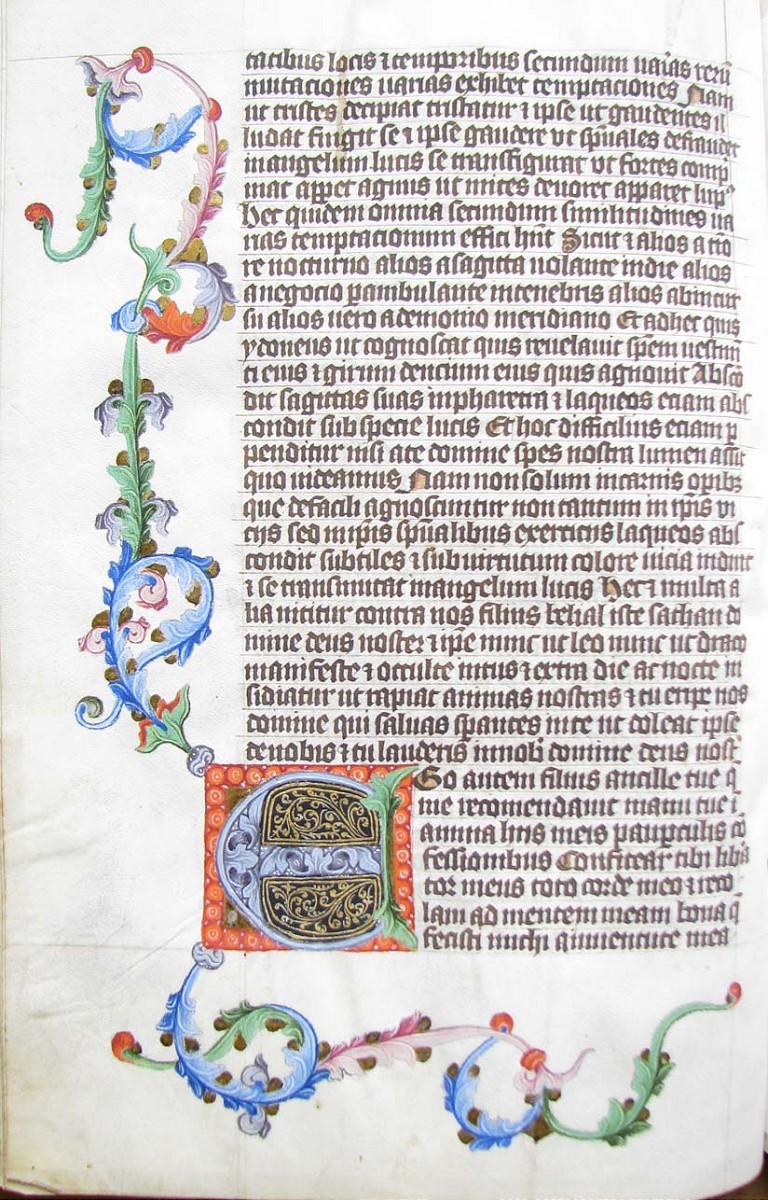 tatibus locis ⁊ temporibus secundum uaias rerū
mutaciones uarias exhibet temptaciones Nam
ut tristes decipiat tristatur ⁊ ipse ut gaudentes il
ludat fingit se ⁊ ipse gaudere vt spūales defraudet
inangelum lucis se transfigurat vt fortes comp
mat appet agnus ut mites deuoret apparet lupꝰ
Hec quidem omnia secundum similitudines ua
rias temptacionum effici hn̄t Sicut ⁊ alios a tīo
re nocturno alios a sagitta uolante indie alios
a negocio pambulante intenebris alios abincur
su alios uero ademonio meridiano Et adhec quis
ydoneus ut cognoscat quis reuelauit spem uestim̄
ti eius ⁊ girum dencium eius quis agnouit Absco
dit sagittas suas inpharetra ⁊ laqueos etiam abs
condit sub specie lucis Et hoc difficilius etiam p
penditur nisi ate domine spes nostra lumen assit
quo uideamus Nam non solum incarnis opibꝫ
que defacili agnoscuntur non tantum in ip̄is vi
cijs sed inip̄is spūalibus exercicijs laqueos abs
condit subtiles ⁊ sub uirtutum colore uicia induit
⁊ se transmutat inangelum lucis Hec ⁊ multa a
lia nititur contra nos filius belial iste sathan do
mine deus noster ⁊ ip̄e nunc ut leo nunc ut draco
manifeste ⁊ occulte intus ⁊ extra die ac nocte in
sidiatur ut rapiat animas nostras ⁊ tu eripe nos
domine qui saluas spantes inte ut doleat ipse
denobis ⁊ tu lauderis innob̄ domine deus nost̄
EGo autem filius ancille tue q̄
me recomendauit manu tue ī
anima hijs meis paupculis cō
fessionibus Confitear tibi libā
tor meus toto corde meo ⁊ reco
lam ad mentem meam bona q̄
fecisti michi aiuuentute mea